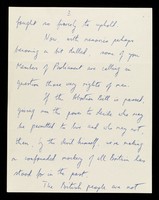 2
fought so fiercely to uphold.
Now with memories perhaps
becoming a bit dulled some of you
Members of Parliament are calling in
question these very rights of man.
If the Abortion Bill is passed
giving you the power to decide who may
be permitted to live and who may not,
then, by the Act itself, we're making
a confounded mockery of all Britain has
stood for in the past.
The British people are not